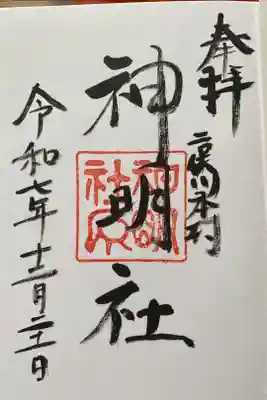 奉拝
神明社
神明社印
令和七年十二月二十一日